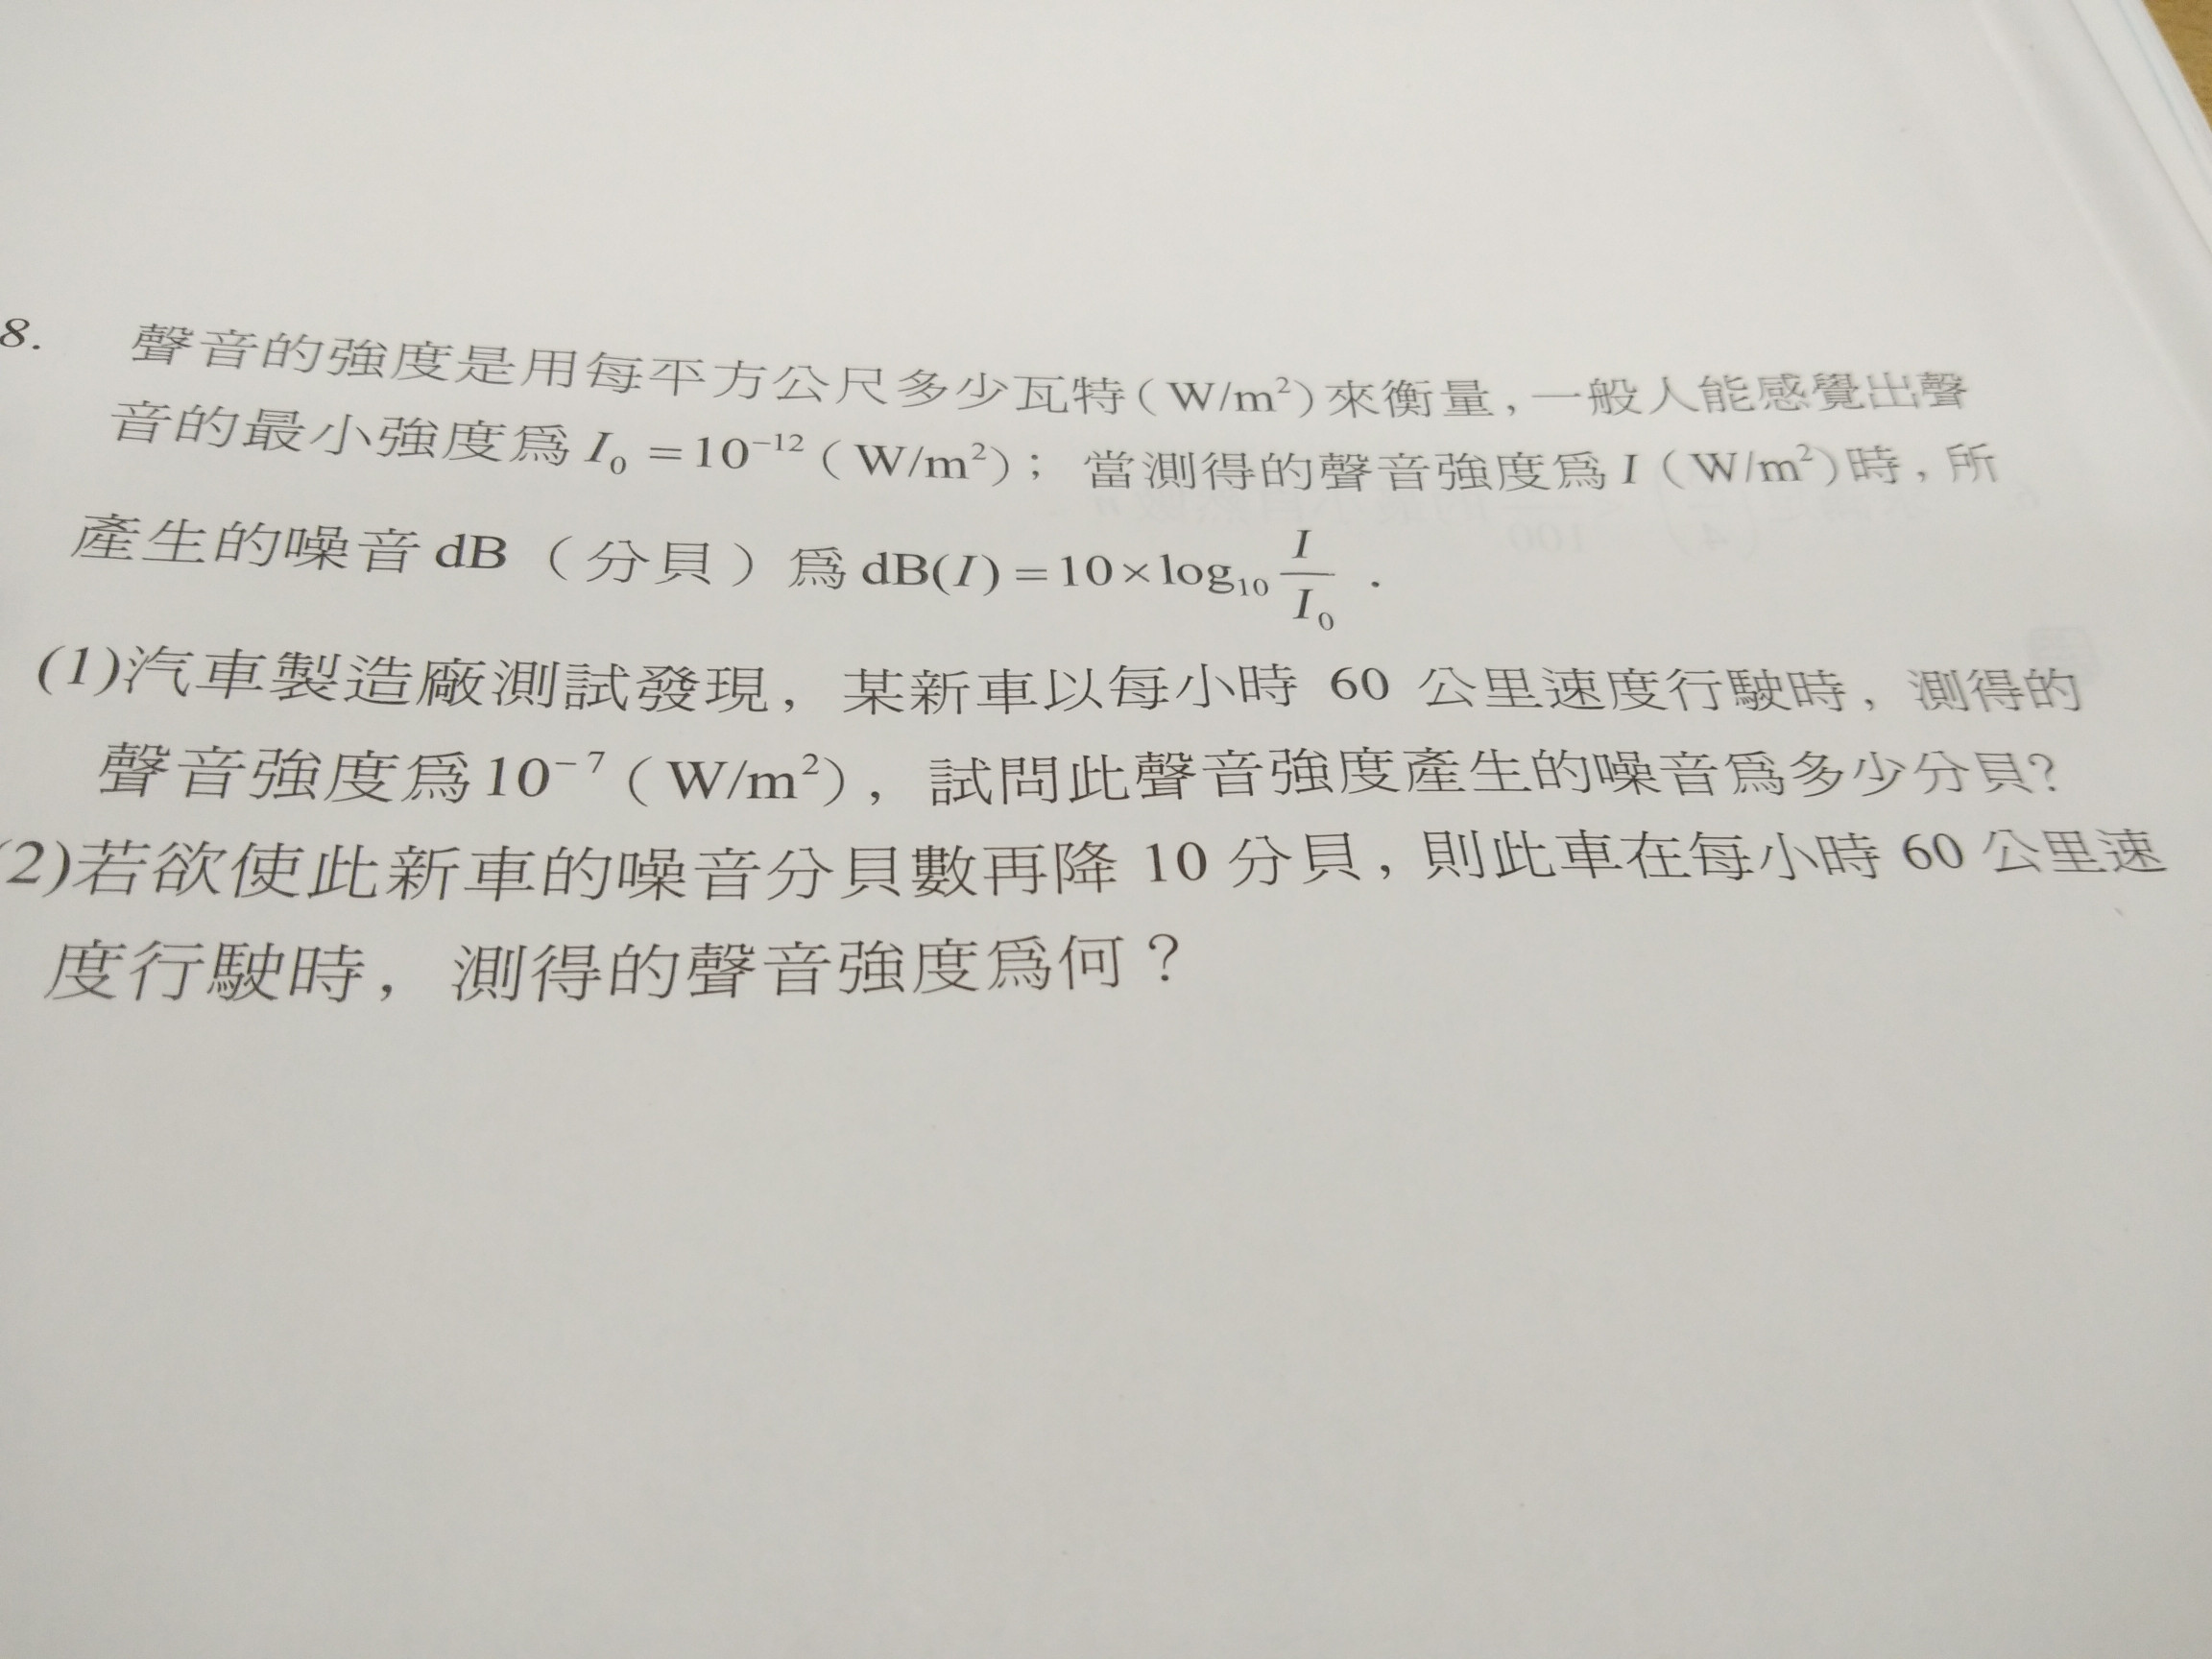 8. 聲音的強度是用每平方公尺多少瓦特(W/m²)來衡量,一般人能感覺出聲
音的最小強度爲 I₀ = 10⁻¹² (W/m²); 當測得的聲音強度爲 I (W/m²)時,所
產生的噪音 dB (分貝) 爲 dB(I) = 10×log₁₀ I/I₀ .
(1)汽車製造廠測試發現, 某新車以每小時 60 公里速度行駛時, 測得的
聲音強度爲10⁻⁷ (W/m²), 試問此聲音強度產生的噪音爲多少分貝?
(2)若欲使此新車的噪音分貝數再降 10 分貝, 則此車在每小時 60 公里速
度行駛時, 測得的聲音強度爲何?